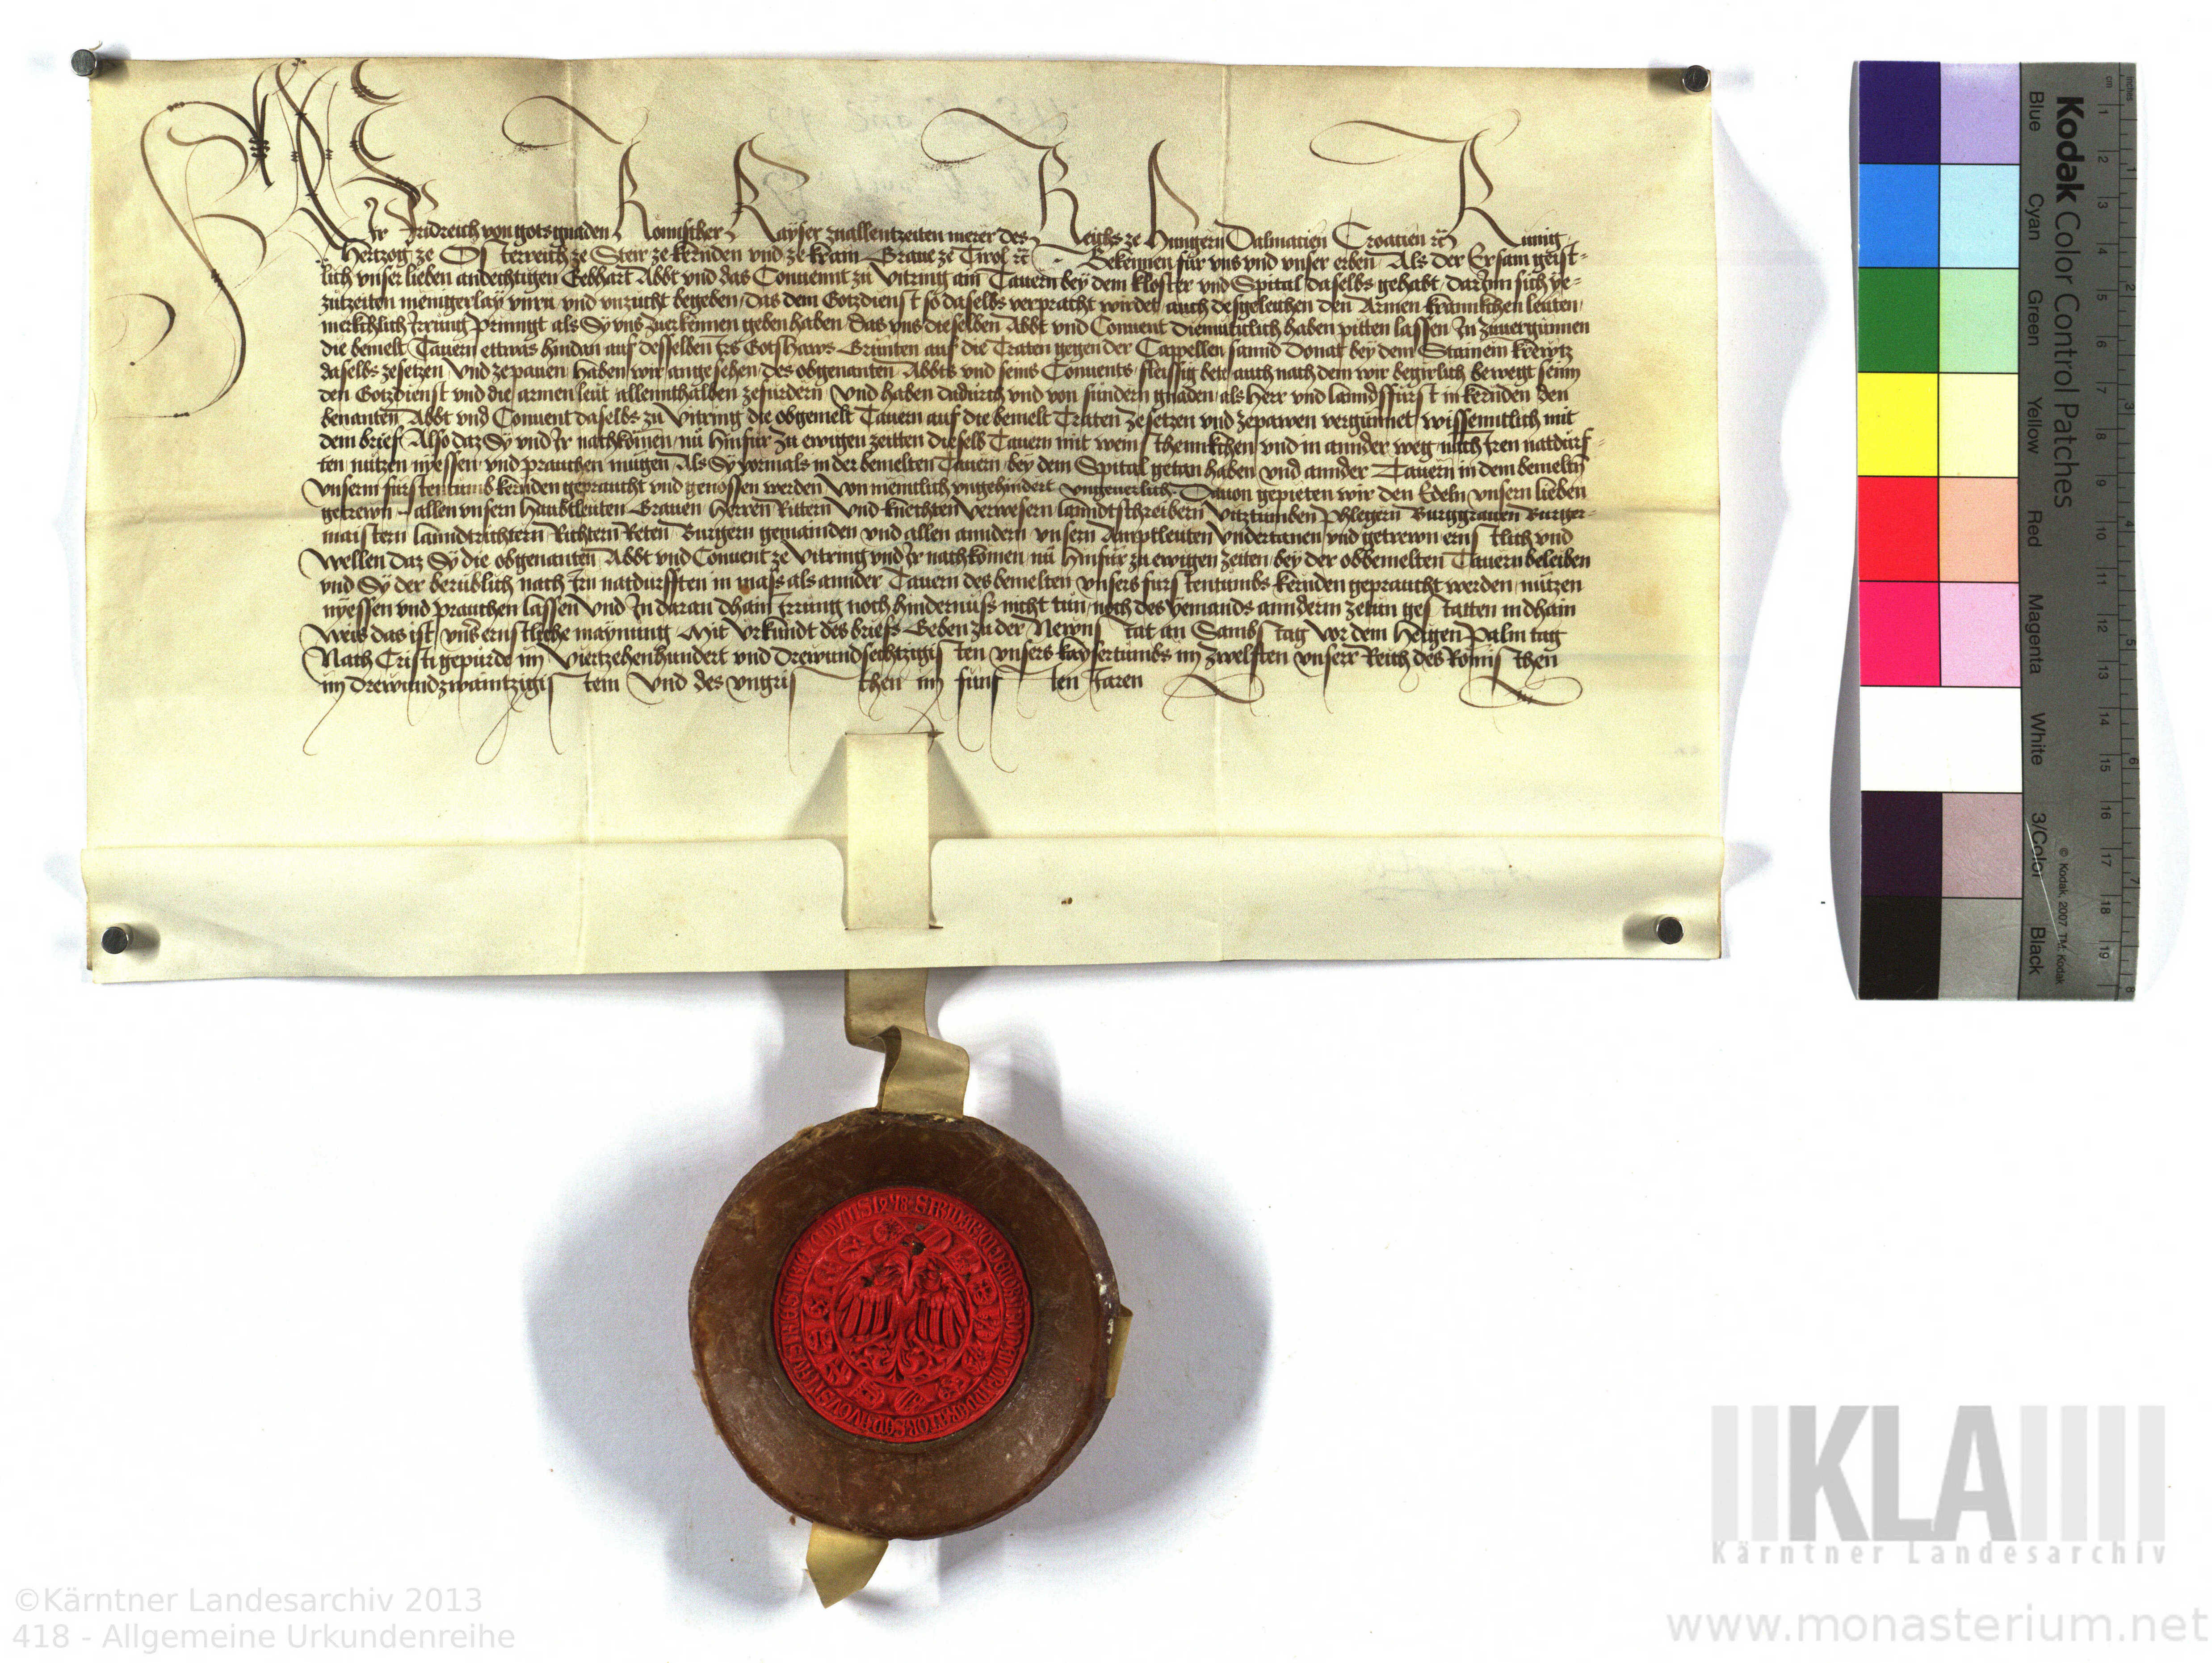 Wir Fridreich von gots gnaden Romischer Kayser zuallenntzeiten merer des Reichs ze Hungern Dalmatien Croatien rc Kunig
Hertzog ze Osterreich ze Steir ze kernden vnd ze krain Graue ze Tirol rc Bekennen für vns vnd vnser erben Als der Ersam geist-
lich vnser lieben andechtigen Gebhart Abbt vnd das Conuennt zu Vitring ain Tauern bey dem kloster vnd Spital daselbs gehabt darInn sich ye-
zuzeiten menigerlay vnru vnd vnzucht begeben das dem Gotzdienst so daselbs verpracht wirdet auch desgeleichen den Armen krannkchen leuten
merkchlich Irrung pringt als Sy vns zuerkennen geben haben das vns dieselben Abbt vnd Conuent diemuticlich haben pitten lassen In zuuergunnen
die bemelt Tauern ettwas hindan auf desselben irs Gotshaws Grunten auf die Traten gegen der Cappellen sannd Donat bey dem Stainein krewtz
daselbs zesetzen vnd zepauen haben wir angesehen des obgenanten Abbts vnd seins Conuents fleissig bete auch nach dem wir begirlich bewegt seinn
den Gotzdienst vnd die armen leut allennthalben zefurdern vnd haben dadurch vnd von sundern gnaden als Herr vnd lanndsfürst in kernden den
benanten Abbt vnd Conuent daselbs zu Vitring die obgemelt Tauern auf die bemelt Traten zesetzen vnd zepawen vergunnet wissenntlich mit
dem brief Also daz Sy vnd Ir nachkomen nu hinfür zu ewigen zeitten dieselb Tauern mit wein schennkchen vnd in annder weg nach iren notdurf-
ten nutzen nyessen vnd prauchen mugen Als Sy vormals in der bemelten Tauern bey dem Spital getan haben vnd annder Tauern in dem bemelten
vnserm fürstentumb kernden gepraucht vnd genossen werden von menntlich vngehindert vngeuerlich Dauon gepieten wir den Edeln vnsern lieben
getrewn allen vnsern Haubtleuten Grauen Herren Rittern vnd knechten verwesern lanndtschreibern vitztumben phlegern Burggrauen Burger-
maistern lanndtrichtern Richtern Reten Burgern gemainden vnd allen anndern vnsern Amptleuten vndertanen vnd getrewn ernstlich vnd
wellen daz Sy die obgenanten Abbt vnd Conuent ze Vitring vnd Ir nachkomen nu hinfür zu ewigen zeiten bey der obbemelten Tauern beleiben
vnd Sy der berublich nach irn notdurfften in mass als annder Tauern des bemelten vnsers fürstentumbs kernden gepraucht werden nutzen
nyessen vnd prauchen lassen vnd In daran dhain Irrung noch hindernuss nicht tun noch des yemands annderm zetun gestatten in dhain
weis das ist vnser ernstliche maynung Mit vrkundt des briefs Geben zu der Newnstat an Sambstag vor dem Heiligen Palm tag
Nach Cristi gepurde im viertzehenhundert vnd drewundsechtzigisten vnsers kaysertumbs im zwelften vnserr Reich des Romischen
im drewundzwaintzigistem vnd des vngrischen im funften Jaren
Kodak Color Control Patches
Blue Cyan Green Yellow Red Magenta White 3/Color Black
© Kodak, 2007 TM: Kodak
cm 1 2 3 4 5 6 7 8 9 10 11 12 13 14 15 16 17 18 19
inches 1 2 3 4 5 6 7 8
KLA
Kärntner Landesarchiv
www.monasterium.net
©Kärntner Landesarchiv 2013
418 - Allgemeine Urkundenreihe